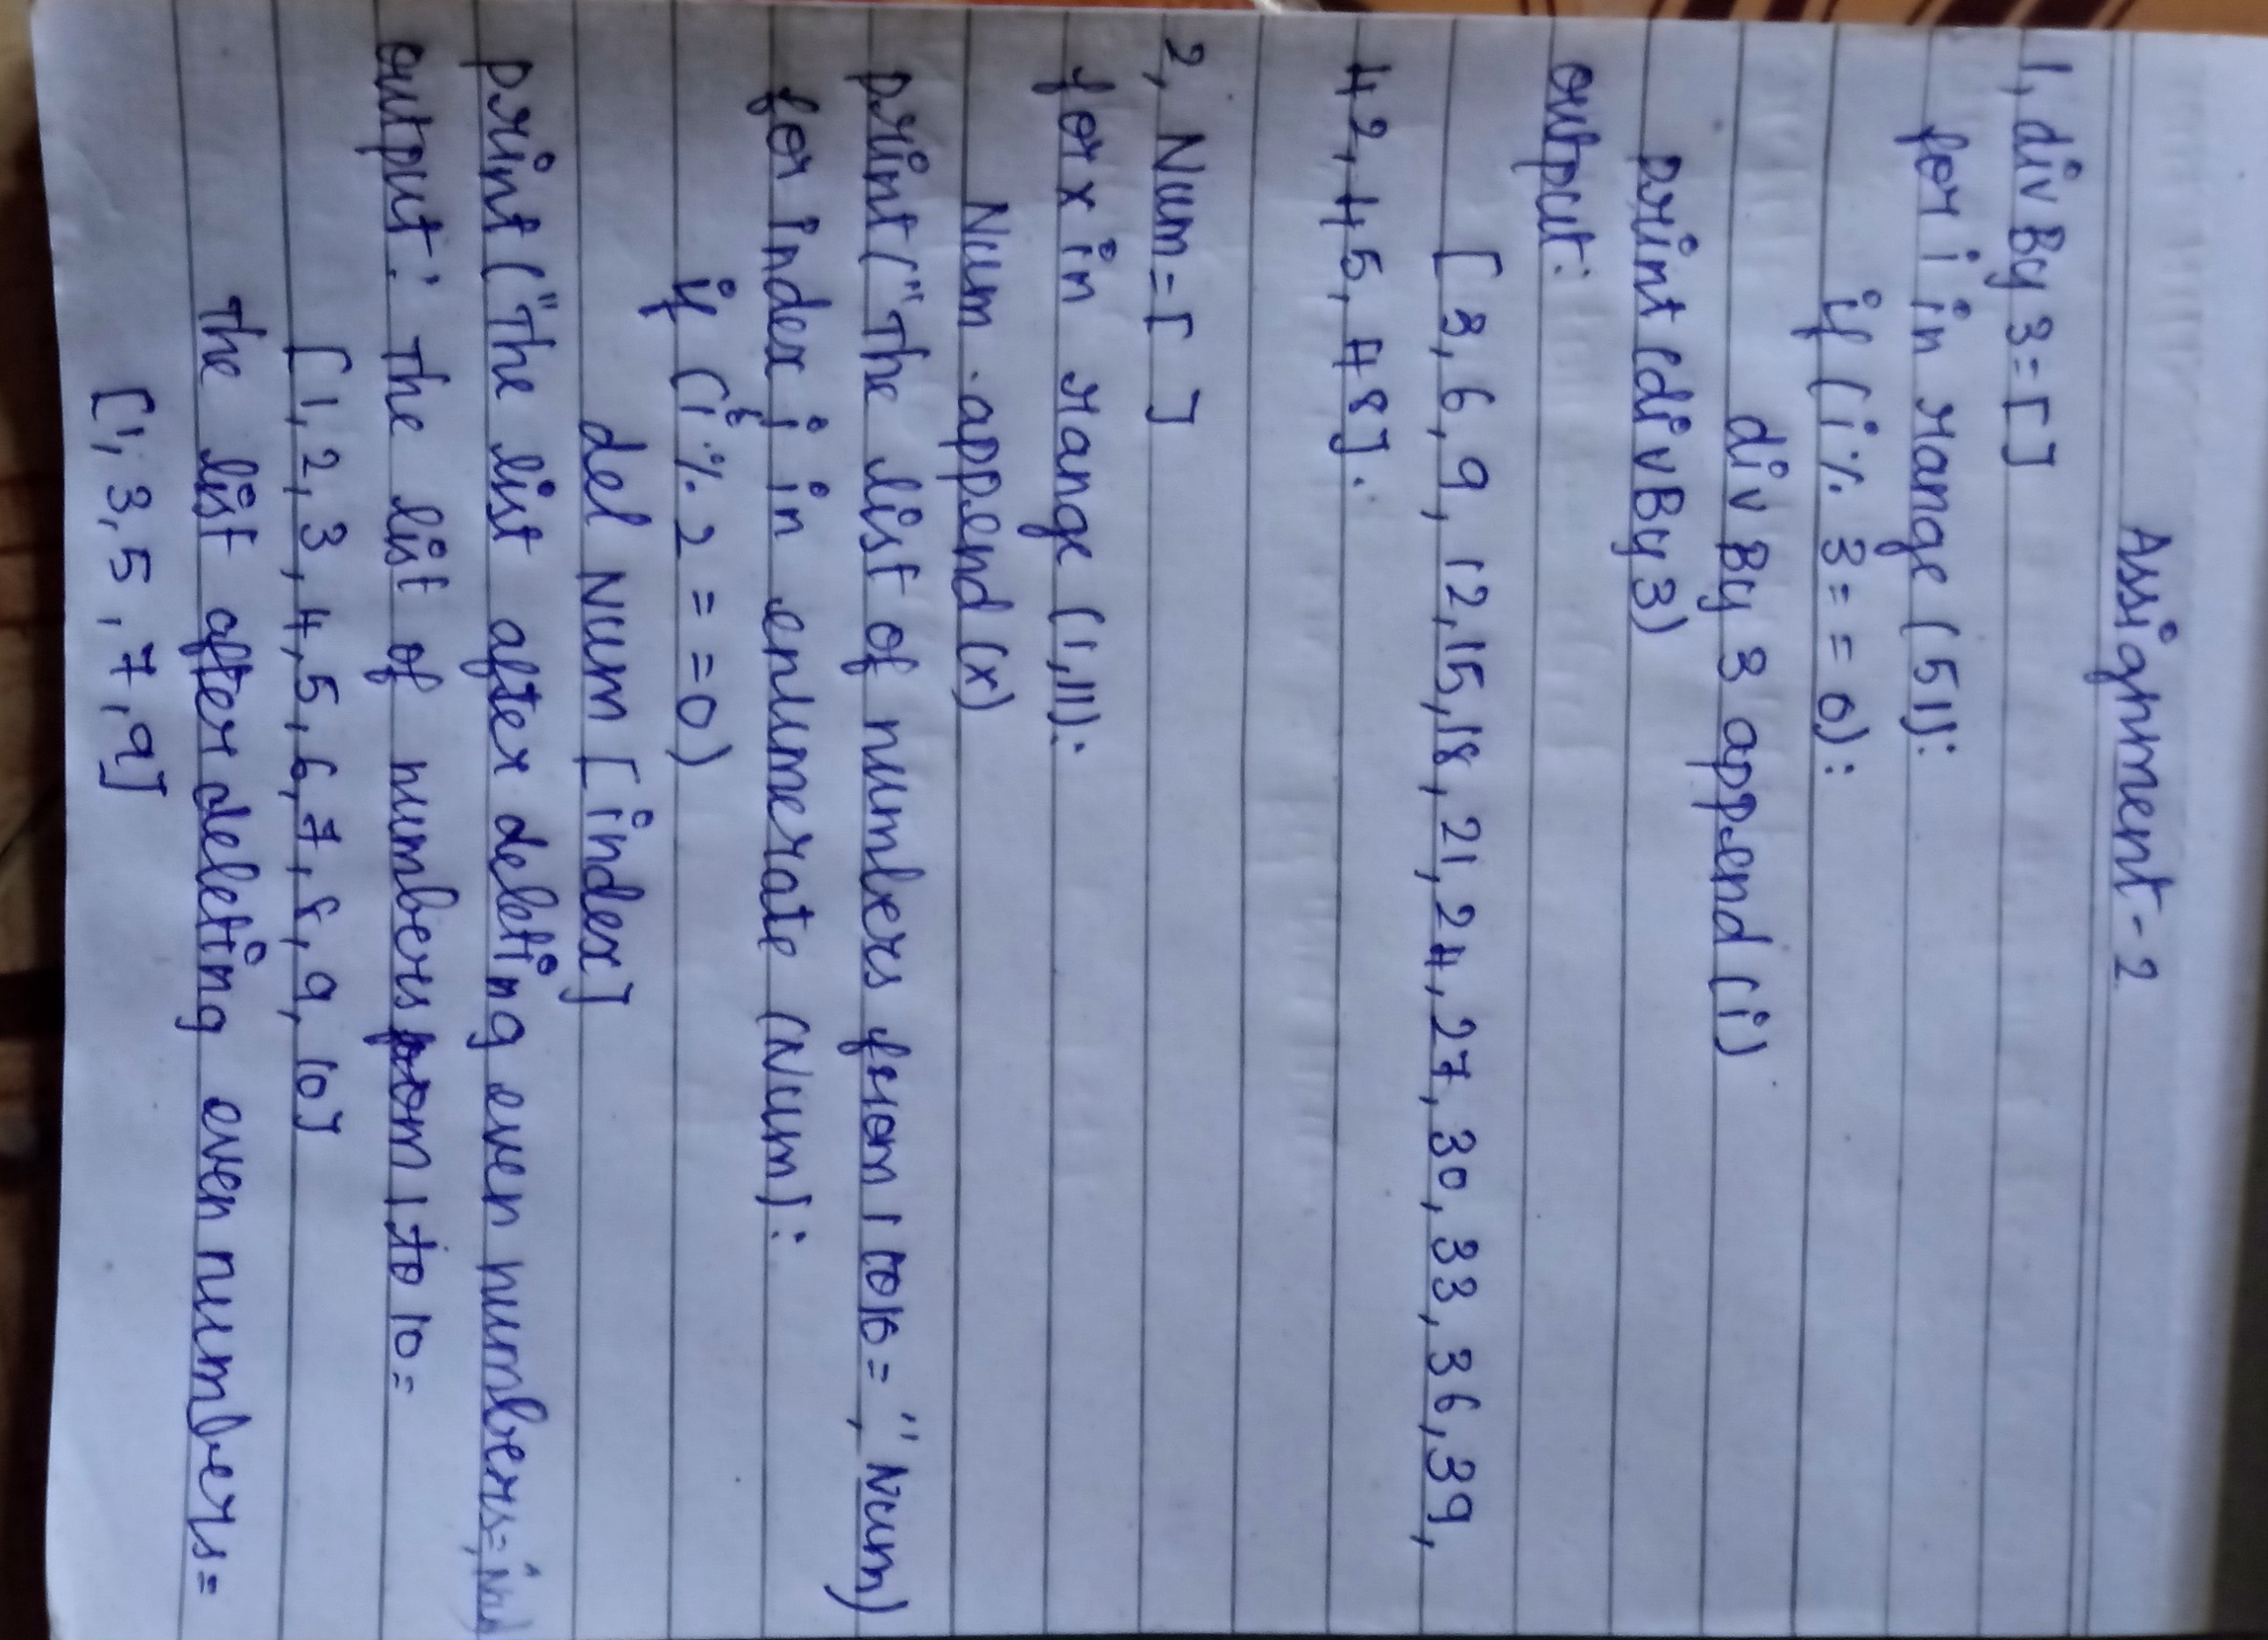 Assignment-2
1, divBy3=[]
for i in range (51):
if (i% 3= = 0):
divBy3 append (i)
print(divBy3)
output:
[ 3, 6, 9, 12, 15, 18, 21, 24, 27, 30, 33, 36, 39,
42, 45, 48].
2, Num=[ ]
for x in range (1,11):
Num .append (x)
print("The list of numbers from 1 to 10 = ", Num)
for index i in enumerate (Num):
if (i % 2 = =0)
del Num [index]
print("The list after deleting even numbers=,
output: The list of numbers from 1 to 10=
[1, 2, 3, 4, 5, 6, 7, 8, 9, 10]
The list after deleting even numbers=
[1, 3, 5, 7, 9]